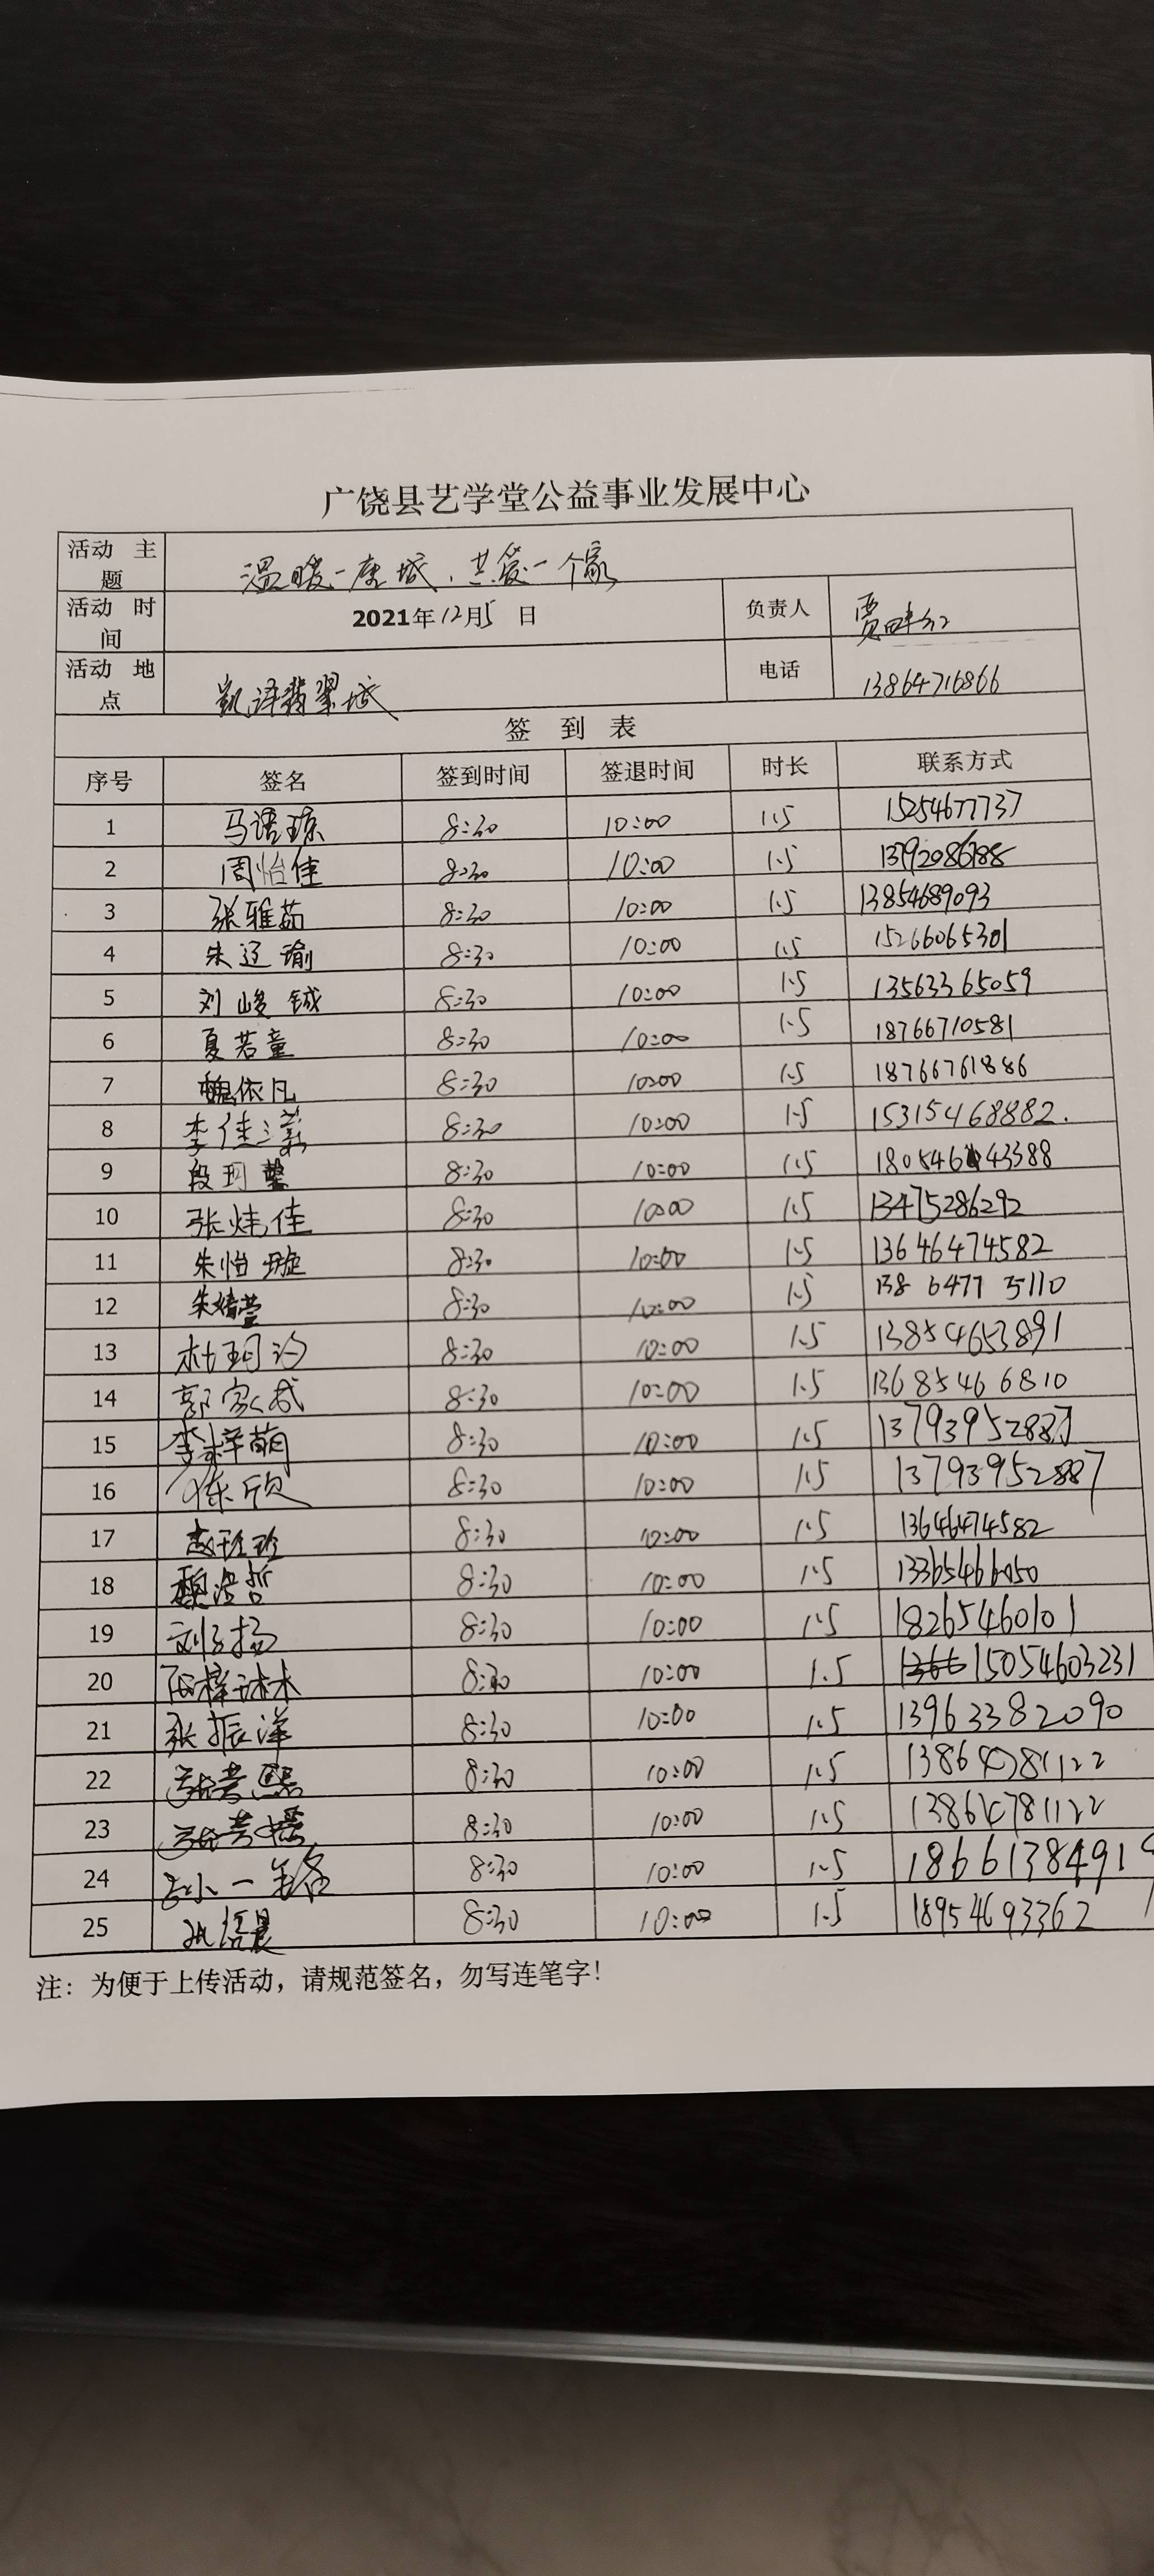 广饶县艺学堂公益事业发展中心
活动 主题 温暖一座城，共爱一个家
活动 时间 2021年12月5日 负责人 贾
活动 地点 凯泽翡翠城 电话 13864716866
签 到 表
序号 签名 签到时间 签退时间 时长 联系方式
1 马语琼 8:30 10:00 1.5 15254677737
2 周怡佳 8:30 10:00 1.5
3 张雅茹 8:30 10:00 1.5 13854689093
4 朱 瑜 8:30 10:00 1.5 15266065301
5 刘峻铖 8:30 10:00 1.5 13563365059
6 夏若童 8:30 10:00 1.5 18766710581
7 魏依凡 8:30 10:00 1.5 18766761886
8 李佳 8:30 10:00 1.5 15315468882.
9 段珂馨 8:30 10:00 1.5
10 张炜佳 8:30 10:00 1.5 13475286292
11 朱怡璇 8:30 10:00 1.5 13646474582
12 朱婧萱 8:30 10:00 1.5 138 6477 5110
13 杜珂 8:30 10:00 1.5 13854653891
14 郭家 8:30 10:00 1.5 13685466810
15 李梓萌 8:30 10:00 1.5 13793952887
16 陈欣 8:30 10:00 1.5 13793952887
17 8:30 10:00 1.5 13646474582
18 魏浩哲 8:30 10:00 1.5 13365466050
19 刘子扬 8:30 10:00 1.5 18265460101
20 8:30 10:00 1.5 15054603231
21 张振洋 8:30 10:00 1.5 13963382090
22 8:30 10:00 1.5 13864781122
23 8:30 10:00 1.5 13864781122
24 8:30 10:00 1.5 1866138491
25 语晨 8:30 10:00 1.5 18954693362
注：为便于上传活动，请规范签名，勿写连笔字！